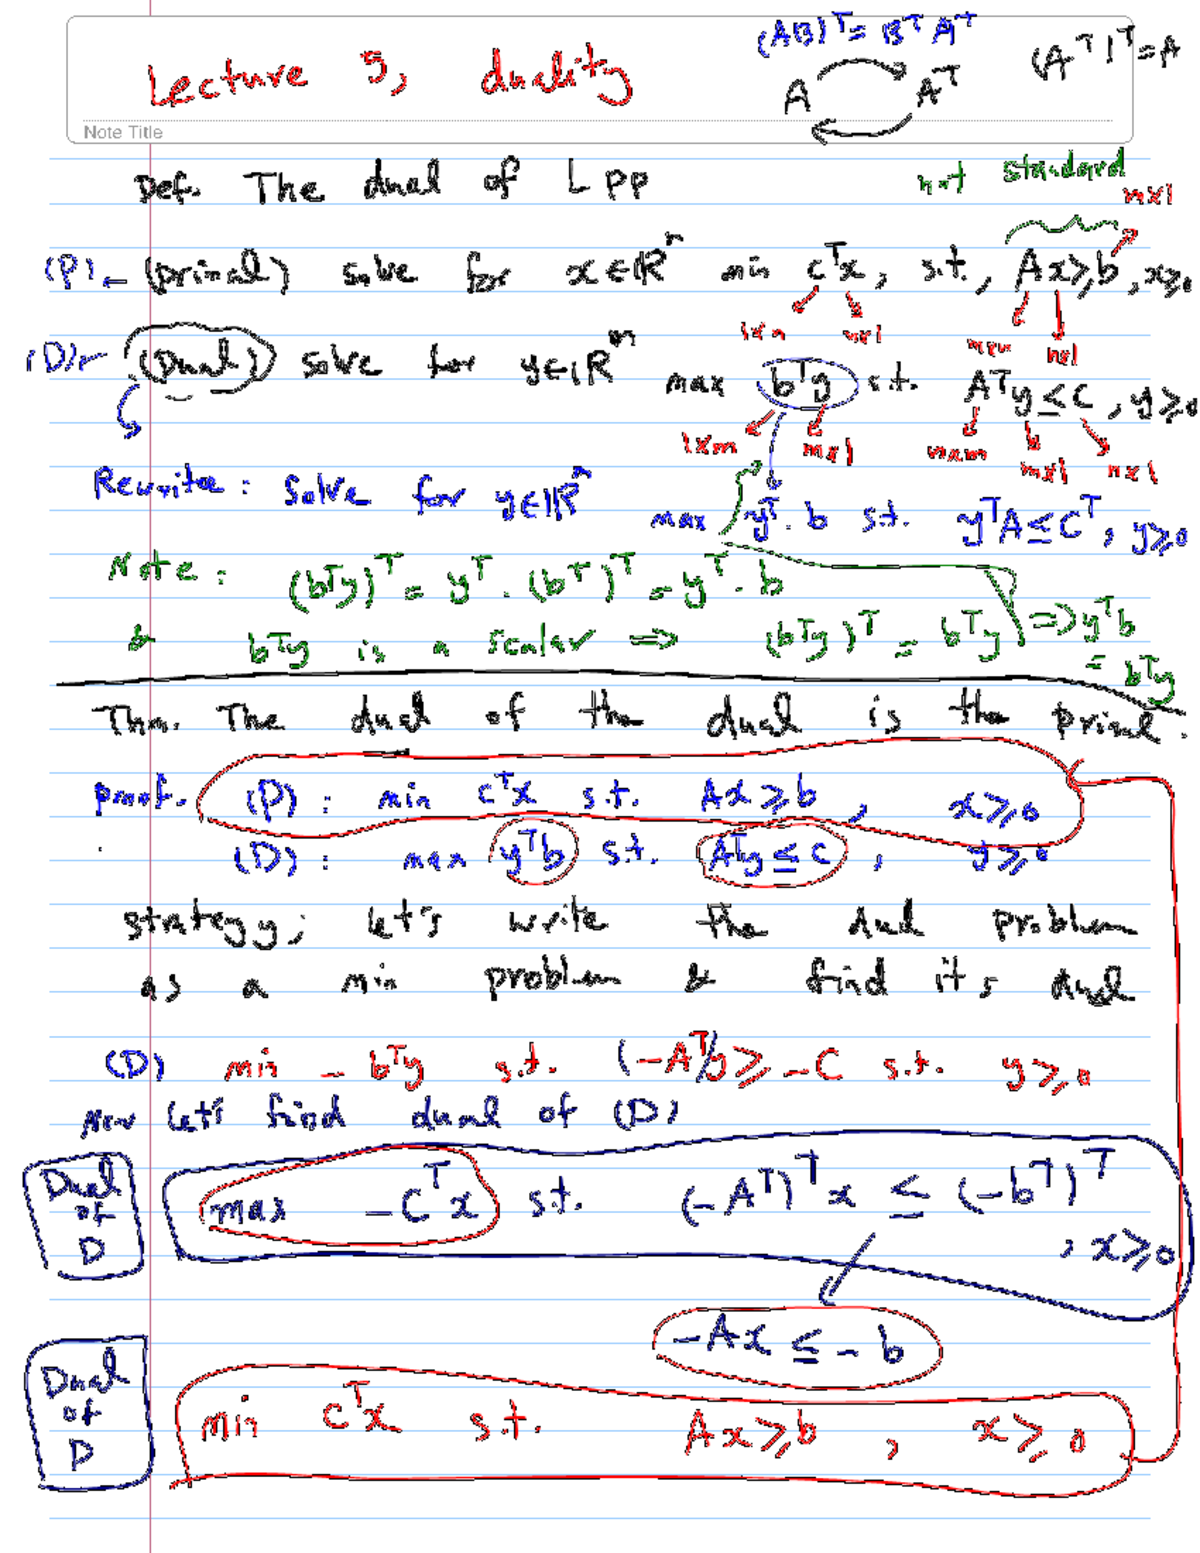 (AB)ᵀ = Bᵀ Aᵀ
Lecture 5, duality
A Aᵀ (Aᵀ)ᵀ = A
Note Title
Def. The dual of Lpp not standard
mx1
(P) (primal) solve for x∈ℝⁿ min cᵀx, s.t., Ax≥b, x≥0
1xn nx1 mxn nx1
(D) (Dual) solve for y∈ℝᵐ max bᵀy s.t. Aᵀy≤c, y≥0
1xm mx1 nxm mx1 nx1
Rewrite: solve for y∈ℝⁿ max yᵀ·b s.t. yᵀA≤Cᵀ, y≥0
Note: (bᵀy)ᵀ = yᵀ·(bᵀ)ᵀ = yᵀ·b
& bᵀy is a scalar ⇒ (bᵀy)ᵀ = bᵀy ⇒ yᵀb
= bᵀy
Thm. The dual of the dual is the primal.
proof. (P): min cᵀx s.t. Ax≥b, x≥0
(D): max yᵀb s.t. Aᵀy≤c, y≥0
strategy; let's write the dual problem
as a min problem & find its dual
(D) min - bᵀy s.t. (-Aᵀ)y≥-C s.t. y≥0
Now let's find dual of (D)
Dual of D
max -Cᵀx s.t. (-Aᵀ)ᵀx ≤ (-bᵀ)ᵀ
, x≥0
-Ax ≤ -b
Dual of D
min cᵀx s.t. Ax≥b, x≥0